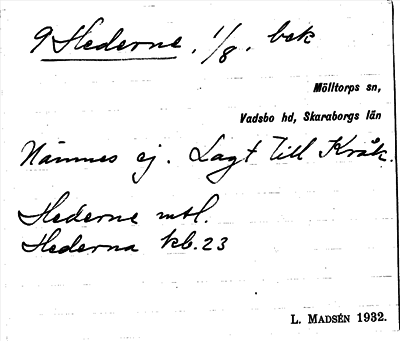 9 Hederne. 1/8. bek
Mölltorps sn,
Vadsbo hd, Skaraborgs län
Nämnes ej. Lagt till Kråk.
Hederne mtl.
Hederna kb. 23
L. MADSÉN 1932.